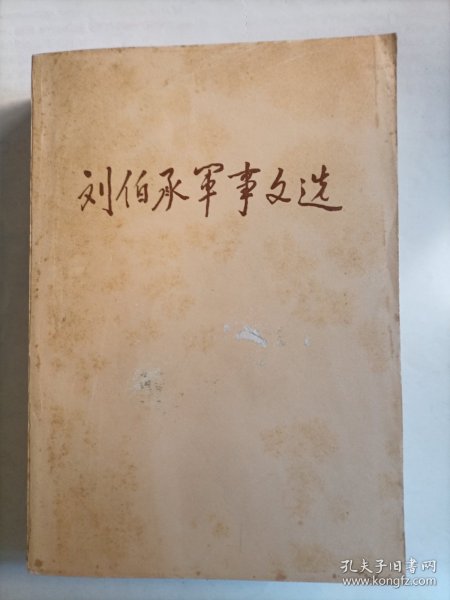 刘伯承軍事文选
孔夫子旧书网
www.kongfz.com